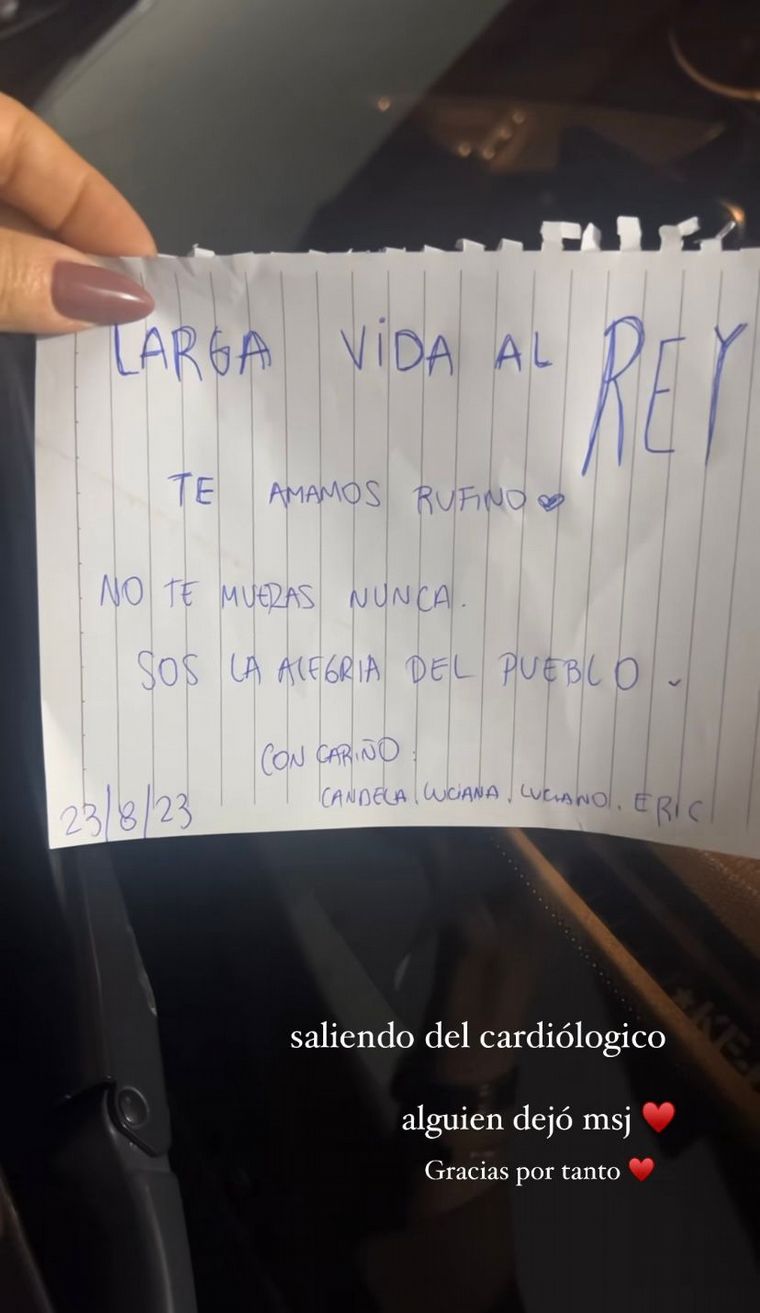 LARGA VIDA AL REY
TE AMAMOS RUFINO
NO TE MUERAS NUNCA.
SOS LA ALEGRIA DEL PUEBLO.
CON CARIÑO:
CANDELA, LUCIANA, LUCIANO, ERIC
23/8/23
saliendo del cardiólogico
alguien dejó msj ♥️
Gracias por tanto ♥️